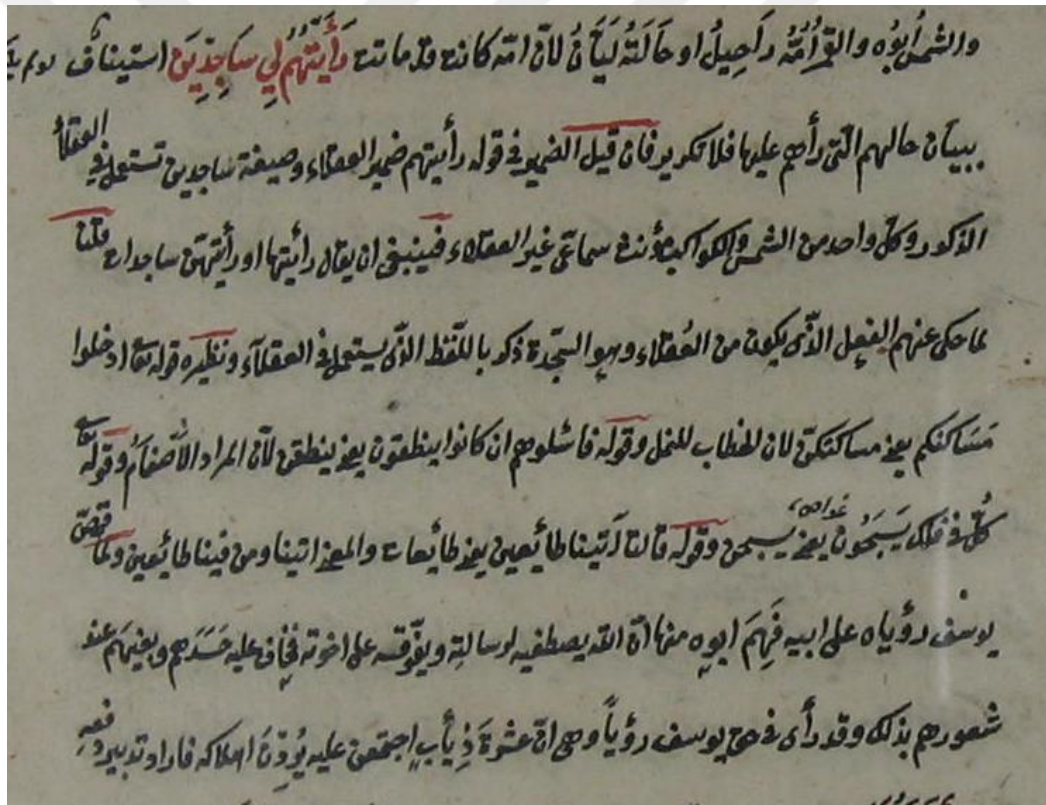 والشمس ابوه والقمر امّه راحيل او خالته ليّان لانّ امّه كانت قد ماتت رَأَيْتُهُمْ لِي سَاجِدِينَ استيناف
ببيان حالهم الّتى رأهم عليها فلا تكرير فان قيل الضمير فى قوله رأيتهم ضمير العقلاء وصيغة ساجدين تستعمل فى العقلاء
الذكور وكلّ واحد من الشمس والكواكب مؤنث سماعى غير العقلاء فينبغى ان يقال رائيتها او رأيتهنّ ساجدات قلنا
لما حكى عنهم الفِعل الذّى يكون من العُقلاء وهو السّجدة ذكر باللّفظ الذّى يستعمل فى العقلآء ونظيره قوله تعا ادخلوا
مَسَاكنكم يعنى مساكنكنّ لان الخطاب للنمل وقوله فاسئلوهم ان كانوا ينطقون يعنى ينطقن لانّ المراد الاصْنامُ وقوله تعا
كُلّ فى فلك يَسْبَحُونَ يعنى يسبحن وقوله قالتا أتينا طائعين يعنى طائعات والمعنى اتينا ومن فينا طائعين ولمّا قصّ
يوسف رؤياه على ابيه فَهِمَ ابوه منها انّ اللّه يصطفيه لرسالته ويفوّقه على اخوته فخاف عليه حَسَدهم وبغيهم عند
شعورهم بذلك وقد رأى فى حق يوسف رؤياً وهى انّ عشرة ذِيَأبٍ اجتمعن عليه يُودّنَ اهلاكه فاراد تدبير دفعه